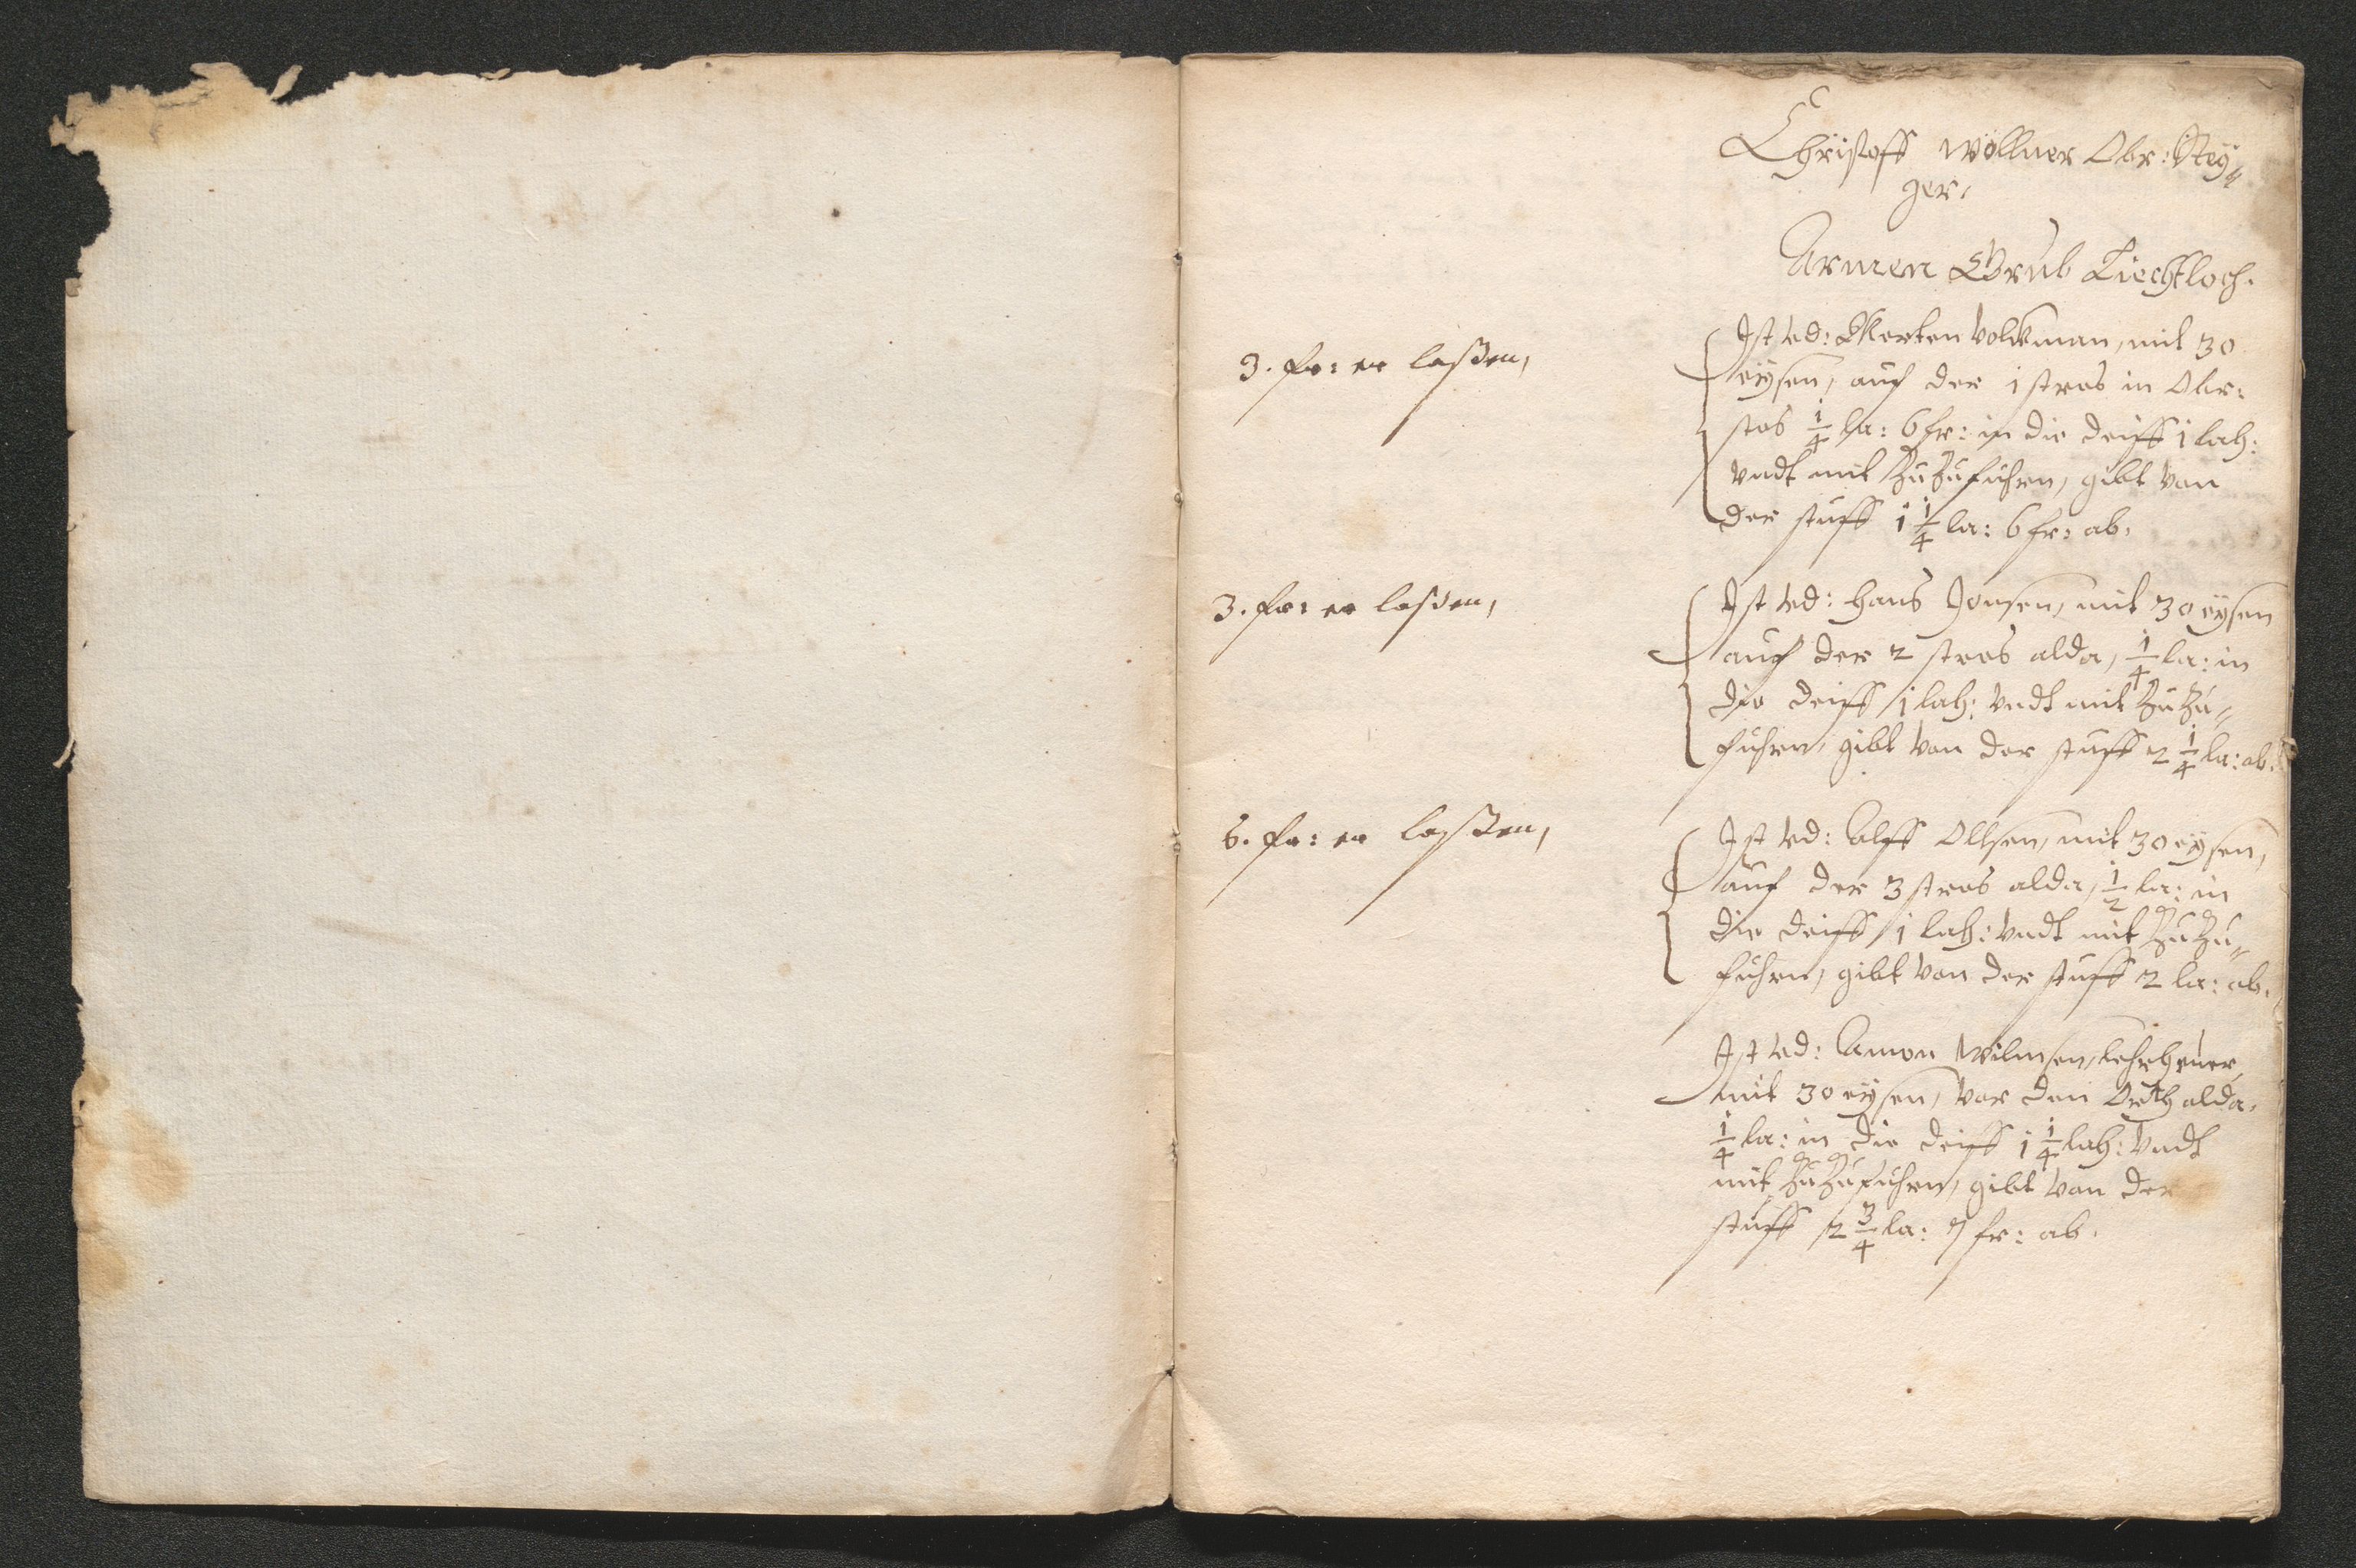 Christoff Wöllner Obr: Steÿ„
ger.
Armen Grub Liechtloch.
3. fr: er laßen,
Ist ved: Merten Volckman, mit 30
eÿsen, auf der 1 stros in Obr:
stos 1/4 la: 6 fr: in die deiff 1 lach:
vndt mit Zu Zufuhren, gibt von
der stuff 1 1/4 la: 6 fr: ab.
3. fr: er laßen,
Ist ved: Hans Jonsen, mit 30 eÿsen
auf der 2 stros alda, 1/4 la: in
die deiff 1 lach: vndt mit Zu Zu„
fuhren, gibt von der stuff 2 1/4 la: ab.
6. fr: er laßen,
Ist ved: Alff Ollsen, mit 30 eÿsen,
auf der 3 stros alda, 1/2 la: in
die deiff 1 lach: vndt mit Zu Zu„
fuhren, gibt von der stuff 2 la: ab.
Ist ved: Amon Wilmsen, Lehrheuer,
mit 30 eÿsen, vor den Orth alda.
1/4 la: in die deiff 1 1/4 lach: vndt
mit Zu Zufuhren, gibt von der
stuff 2 3/4 la: 7 fr: ab.